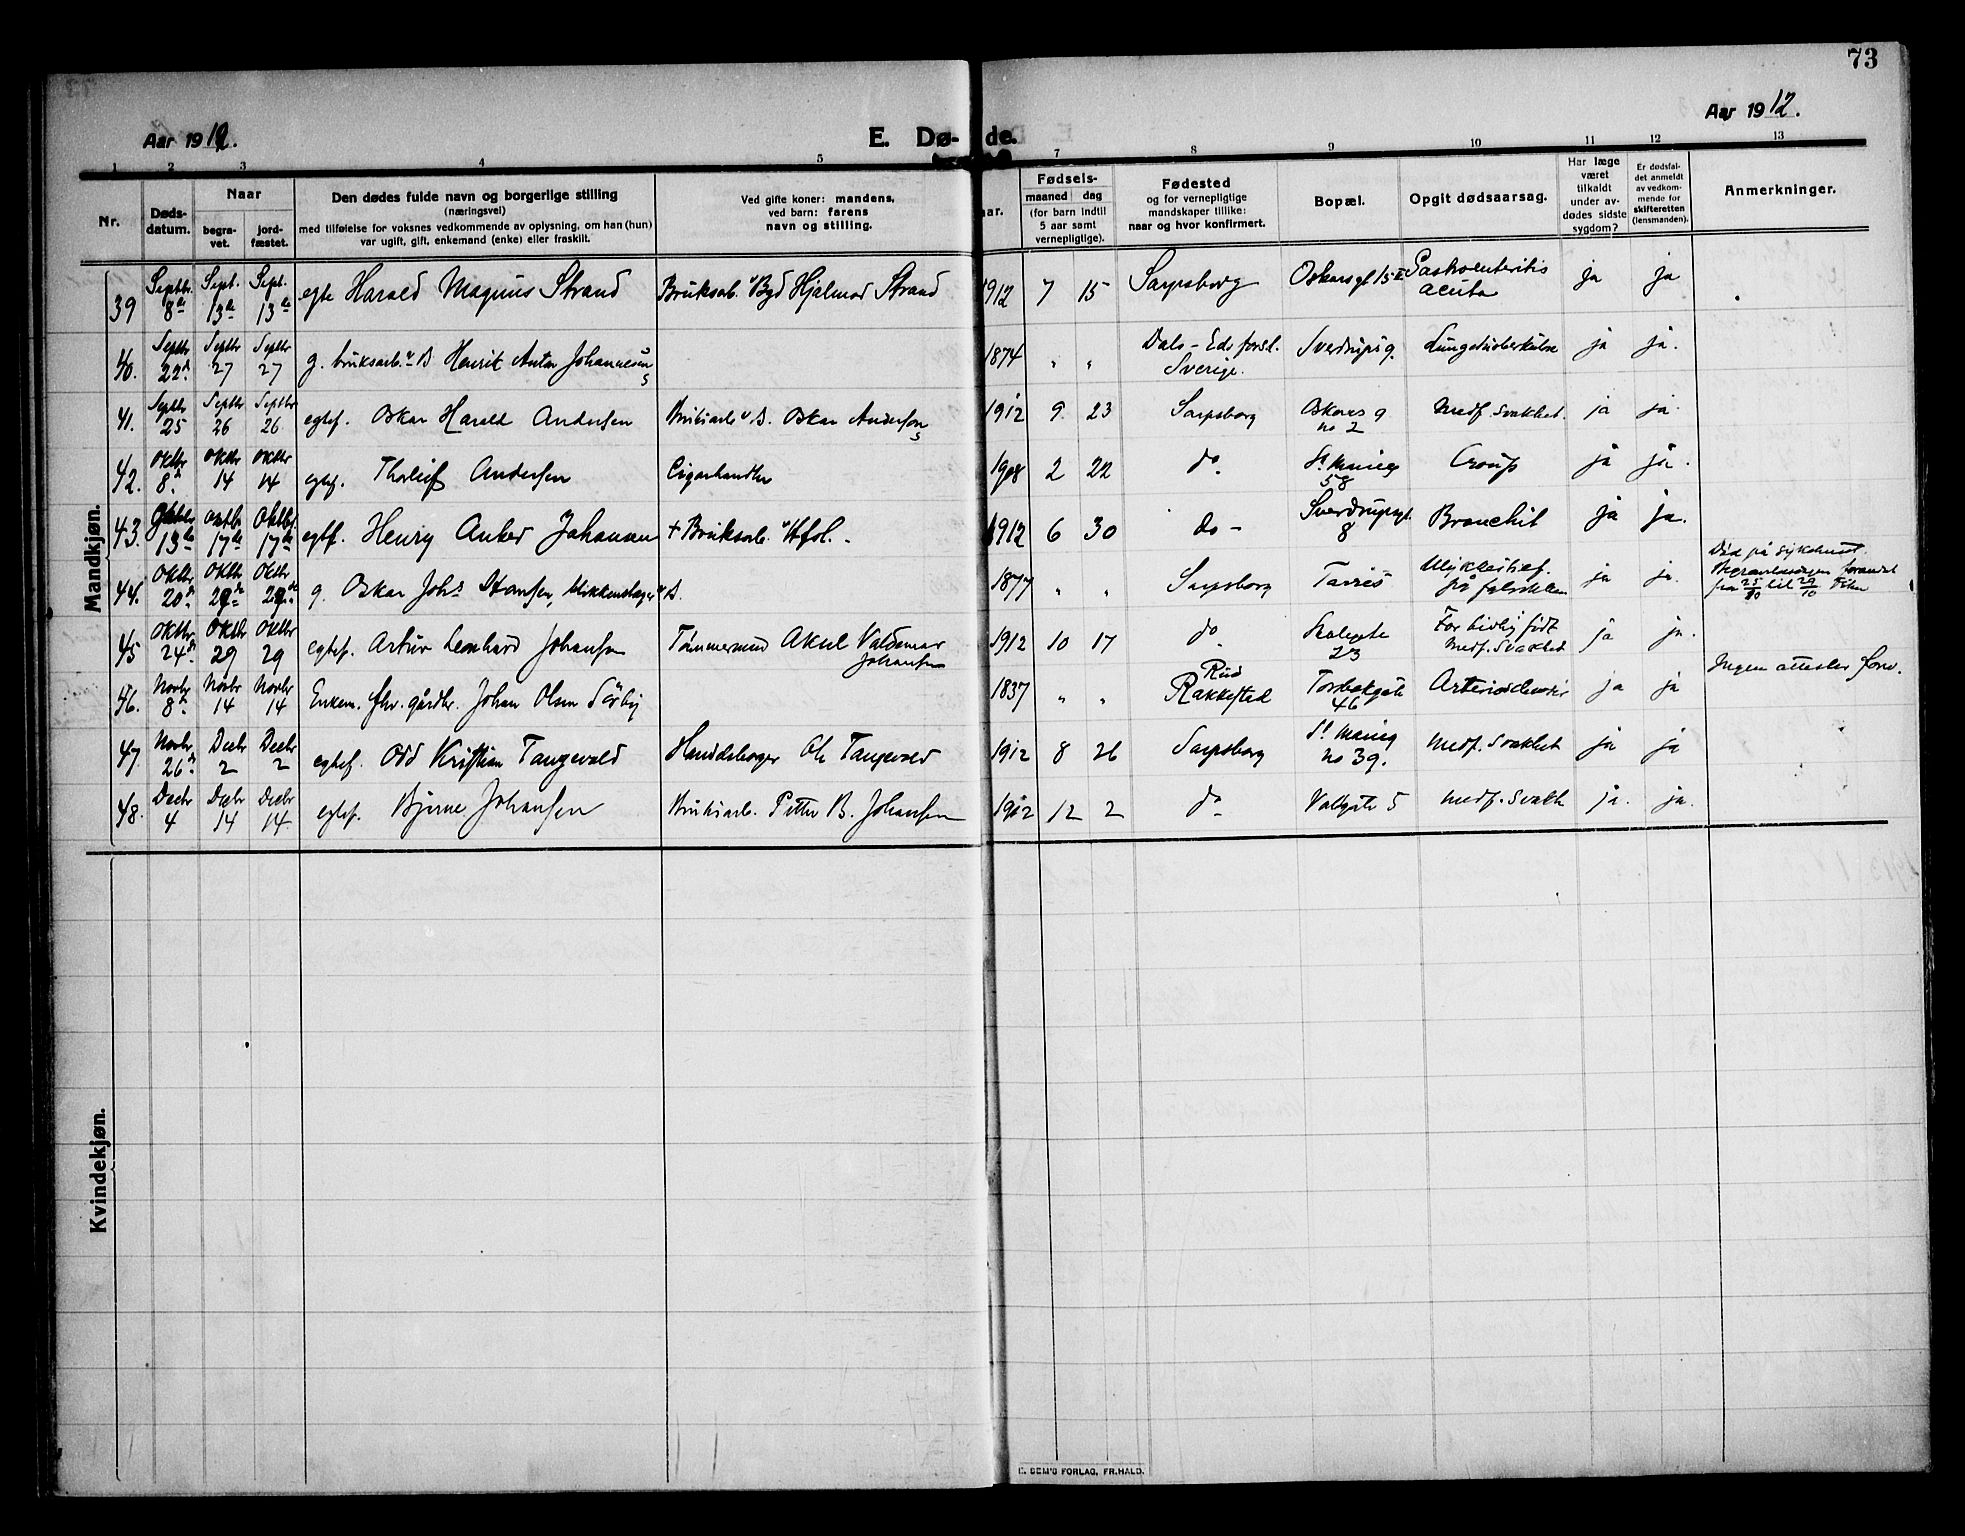 73
Aar 1912.
E. Dø- de.
Aar 1912.
1 2 3 4 5 7 8 9 10 11 12 13
Nr.
Døds-
datum.
Naar
begra-
vet.
jord-
fæstet.
Den dødes fulde navn og borgerlige stilling
(næringsvei)
med tilføielse for voksnes vedkommende av oplysning, om han (hun)
var ugift, gift, enkemand (enke) eller fraskilt.
Ved gifte koner: mandens,
ved barn: farens
navn og stilling.
aar.
Fødsels-
maaned dag
(for barn indtil
5 aar samt
vernepligtige).
Fødested
og for vernepligtige
mandskaper tillike:
naar og hvor konfirmert.
Bopæl.
Opgit dødsaarsag.
Har læge
været
tilkaldt
under av-
dødes sidste
sygdom?
Er dødsfal-
det anmeldt
av vedkom-
mende for
skifteretten
(lensmanden).
Anmerkninger.
Mandkjøn.
39 Septbr. 8de Sept. 13de Sept. 13de egte Harald Magnus Strand Bruksarb. Hjalmar Strand 1912 7 15 Sarpsborg Oskarsgt 15 Gastroenteritis acuta ja ja
40. Septbr 22 Septbr 27 Septbr 27 g. bruksarb. Henrik Anton Johannesen 1874 " " Dals-Eds forsl. Sverige. Sverdrupsg. Lungetuberkulose ja ja.
41. Septbr 25 Septbr 26 Septbr 26 egtef. Oskar Harald Andersen Bruksarb Oskar Andersen 1912 9 23 Sarpsborg Oskars g no 2 Medf. Svakhet ja ja.
42. Oktbr 8 Oktbr 14 Oktbr 14 egtef. Thorleif Andersen Cigarhandler 1908 2 22 do St. Marieg 58 Croup ja ja.
43. Oktbr 13de Oktbr 17de Oktbr 17de egtf. Henry Anker Johansen + Bruksarb. 1912 6 30 do - Sverdrupsgt. 8 Bronchit ja ja.
44. Oktbr 20 Oktbr 29 Oktbr 29 g. Oskar Johs Hansen, 1877 " " Sarpsborg på fabrikken ja ja. Død på sykehuset. Begravelsesdagen forandret fra 25/10 til 29/10
45 Oktbr 24 Oktbr 29 Oktbr 29 egtef. Artur Leonhard Johansen Tømmermand Aksel Valdemar Johansen 1912 10 17 do Skolegate 23 For tidlig født Medf. Svakhet ja ja.
46. Novbr 8 Novbr 14 Novbr 14 Enkem. fhv. gårdbr. Johan Olsen Sørby 1837 " " Rud Rakkestad Torsbekgate 46 ja ja Ingen attester forev.
47. Novbr 26 Decbr 2 Decbr 2 egtef. Odd Kristian Tangevald Ole Tangevald 1912 8 26 Sarpsborg St. Marieg no 39. Medf. Svakhet ja ja
48. Decbr 4 Decbr 14 Decbr 14 egtef. Bjarne Johansen Bruksarb. Petter B. Johansen 1912 12 2 do Valhgate 5 Medf. Svakh ja. ja.
Kvindekjøn.
E. SEM'S FORLAG, FR.HALD.